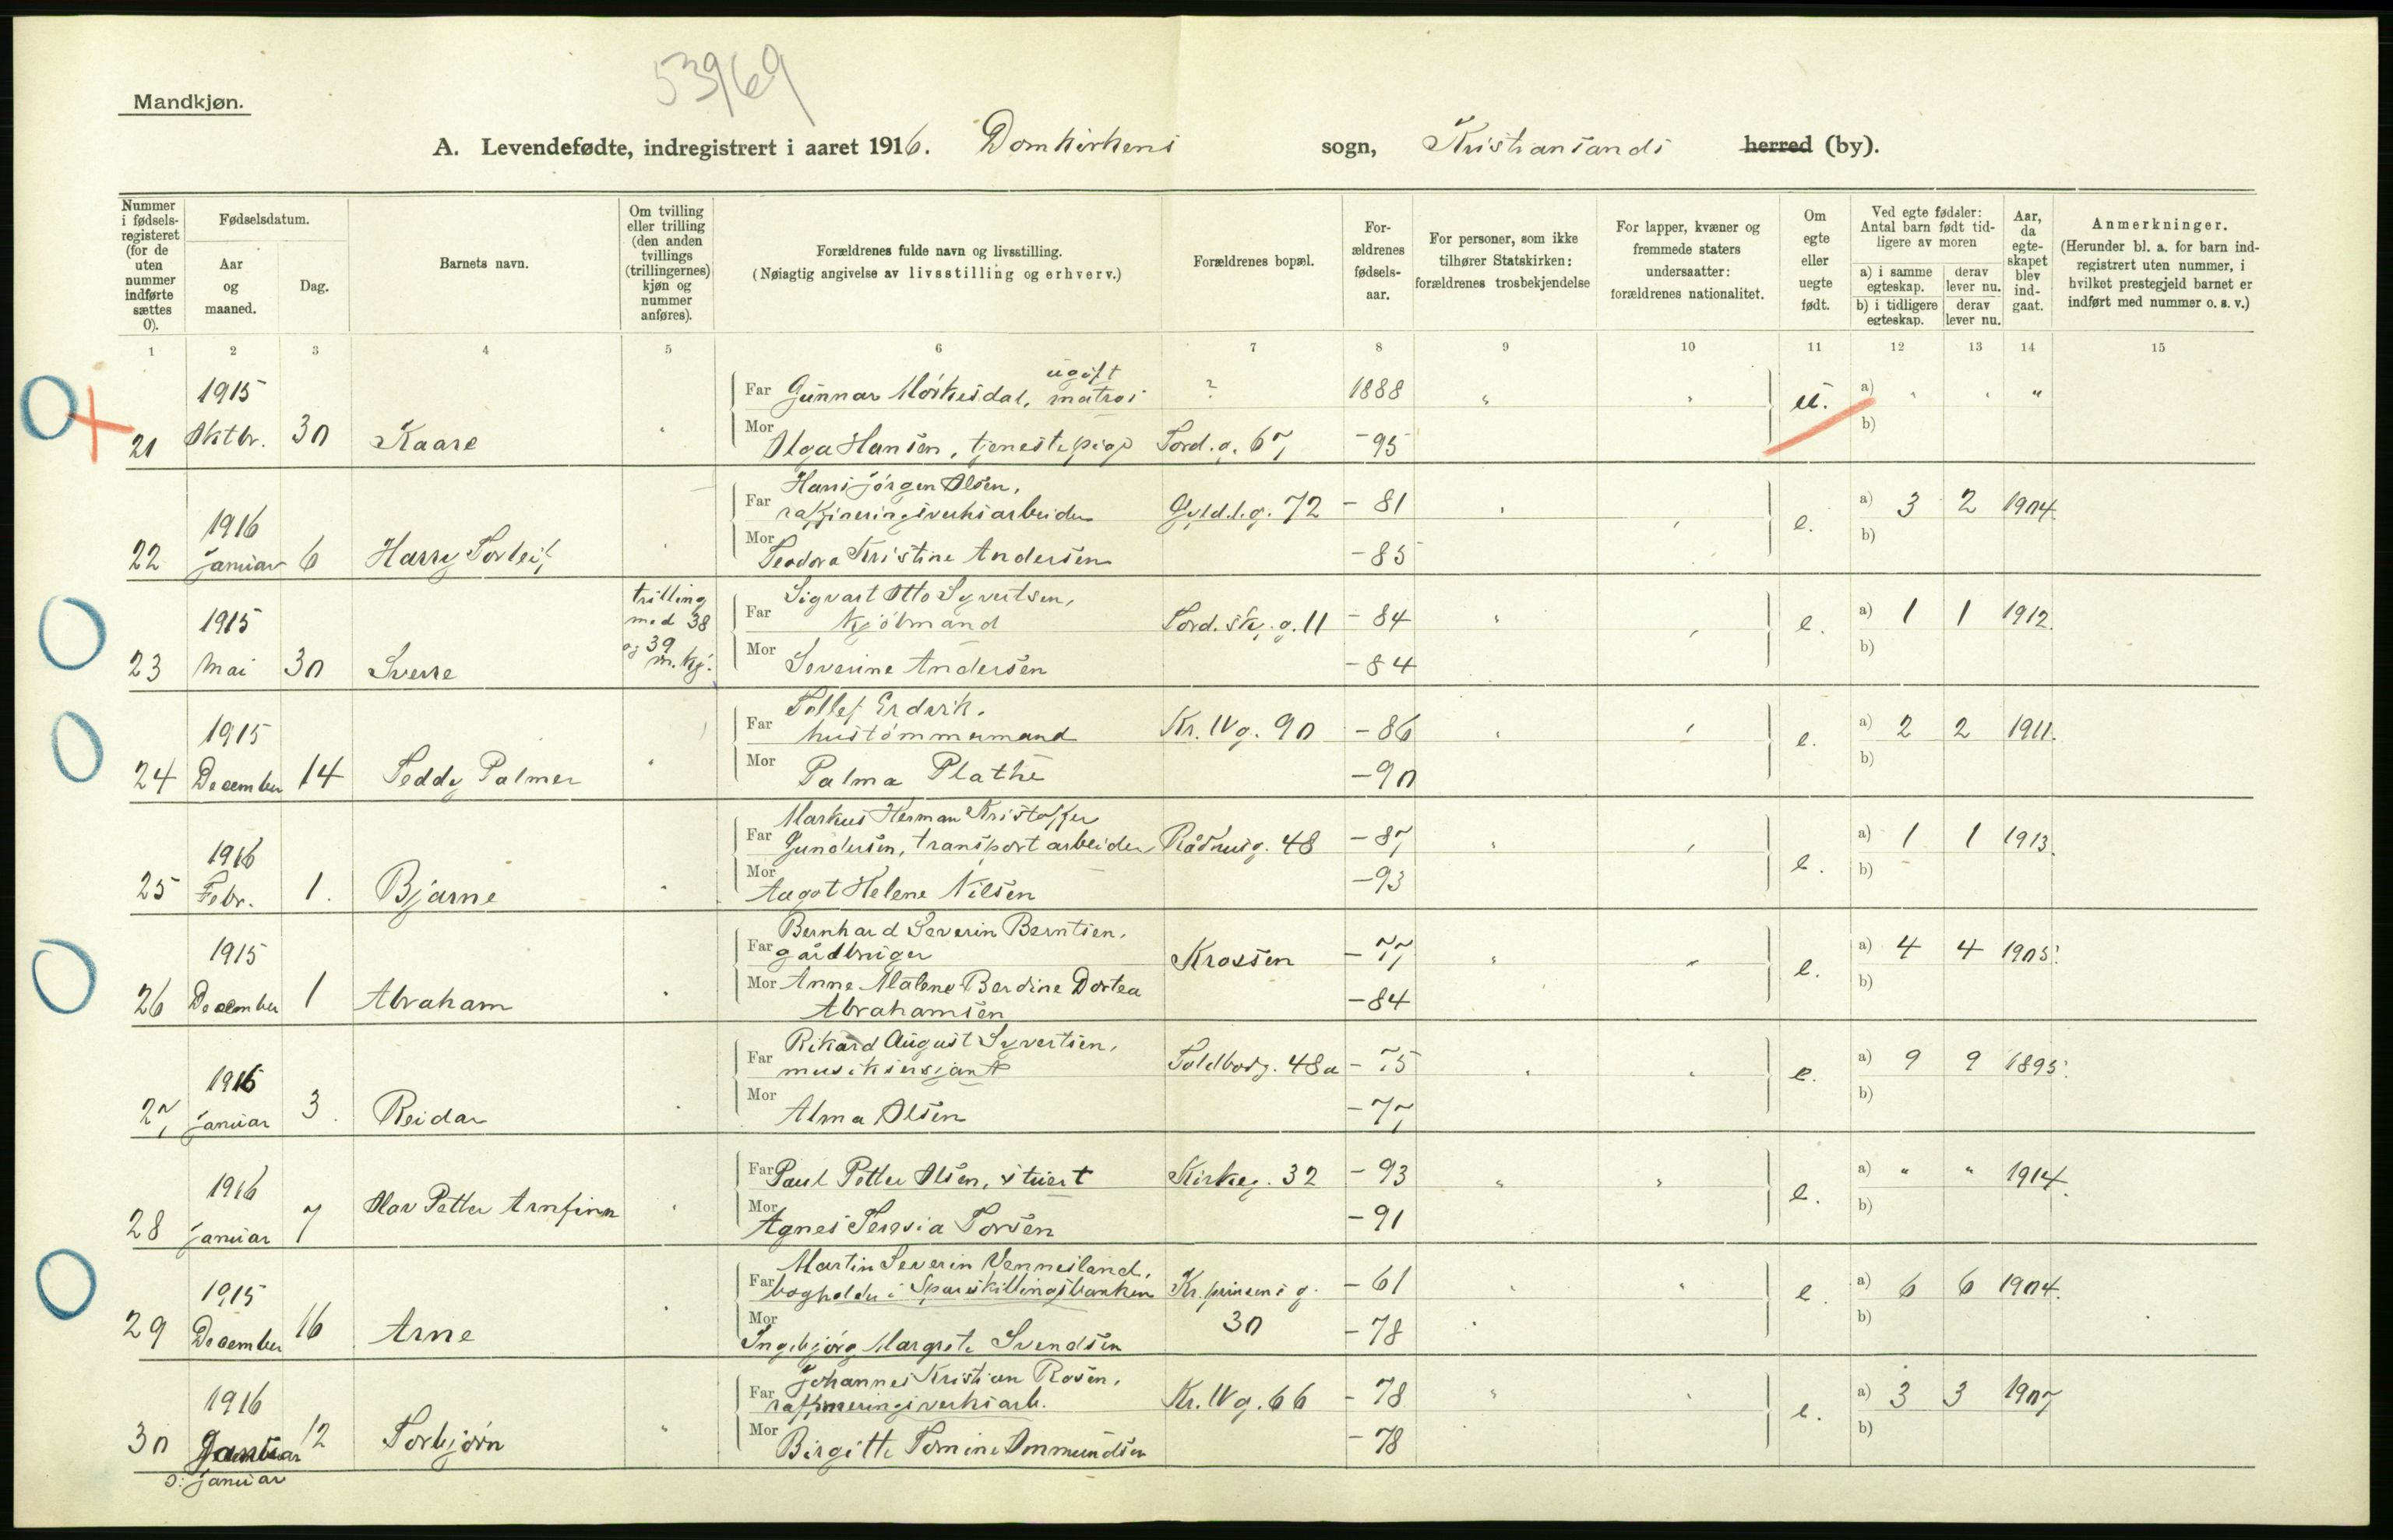 53969
Mandkjøn.
A. Levendefødte, indregistrert i aaret 1916. Domkirkens sogn, Kristiansands herred (by).
Nummer i fødsels-registeret (for de uten nummer indførte sættes 0).
Fødselsdatum.
Aar og maaned.
Dag.
Barnets navn.
Om tvilling eller trilling (den anden tvillings (trillingernes) kjøn og nummer anføres).
Forældrenes fulde navn og livsstilling.
(Nøiagtig angivelse av livsstilling og erhverv.)
Forældrenes bopæl.
For-ældrenes fødsels-aar.
For personer, som ikke tilhører Statskirken: forældrenes trosbekjendelse
For lapper, kvæner og fremmede staters undersaatter: forældrenes nationalitet.
Om egte eller uegte født.
Ved egte fødsler: Antal barn født tid-ligere av moren
a) i samme egteskap. derav lever nu.
b) i tidligere egteskap. derav lever nu.
Aar, da egte-skapet blev ind-gaat.
Anmerkninger.
(Herunder bl. a. for barn ind-registrert uten nummer, i hvilket prestegjeld barnet er indført med nummer o. s. v.)
1 2 3 4 5 6 7 8 9 10 11 12 13 14 15
ugift
1915 Far Gunnar Mörkesdal, matros ? 1888 " " u. a) " " "
21 Oktbr. 30 Kaare " Mor Olga Hansen, tjenestepige Tord.g. 67 -95 b)
Hans Jörgen Olsen,
1916 Far raffineringsverksarbeider Gyld.l.g. 72 - 81 " " e. a) 3 2 1904.
22 Januar 6 Harry Torleif " Mor Teodora Kristine Andersen -85 b)
trilling Sigvart Otto Syvertsen,
1915 med 38 Far Kjöbmand Tord.sk.g. 11 - 84 " " e. a) 1 1 1912.
23 Mai 30 Sverre og 39 m.kj. Mor Severine Andersen -84 b)
Tollef Erdvik.
1915 Far hustömmermand Kr. IV g. 90 - 86 " " e. a) 2 2 1911.
24 December 14 Teddy Palmer " Mor Palma Plathe -90 b)
Markus Herman Kristoffer
1916 Far Gundersen, transportarbeider Rådhusg. 48 - 87 " " e. a) 1 1 1913.
25 Febr. 1. Bjarne " Mor Aagot Helene Nilsen -93 b)
Bernhard Severin Berntsen,
1915 Far gårdbruger Krossen - 77 " " e. a) 4 4 1905.
26 December 1 Abraham " Mor Anne Malene Berdine Dortea -84 b)
Abrahamsen
Rikard August Syvertsen,
1916 Far musiksersjant Toldbodg. 48a - 75 " " e. a) 9 9 1895.
27 Januar 3. Reidar " Mor Alma Olsen -77 b)
1916 Far Paul Petter Olsen, stuert Kirkeg. 32 - 93 " " e. a) " " 1914.
28 Januar 7 Olav Petter Arnfinn " Mor Agnes Teresia Torsen -91 b)
Martin Severin Vennesland,
1915 Far bogholder i Spareskillingsbanken Kr. prinsens g. - 61 " " e. a) 6 6 1904.
29 December 16 Arne " Mor Ingebjörg Margrete Svendsen 30 -78 b)
Johannes Kristian Rosen,
1916 Far raffineringsverksarb. Kr. IV g. 66 - 78 " " e. a) 3 3 1907
30 Januar 12 Torbjörn " Mor Birgitte Tomine Ommundsen -78 b)
ɔ: Januar